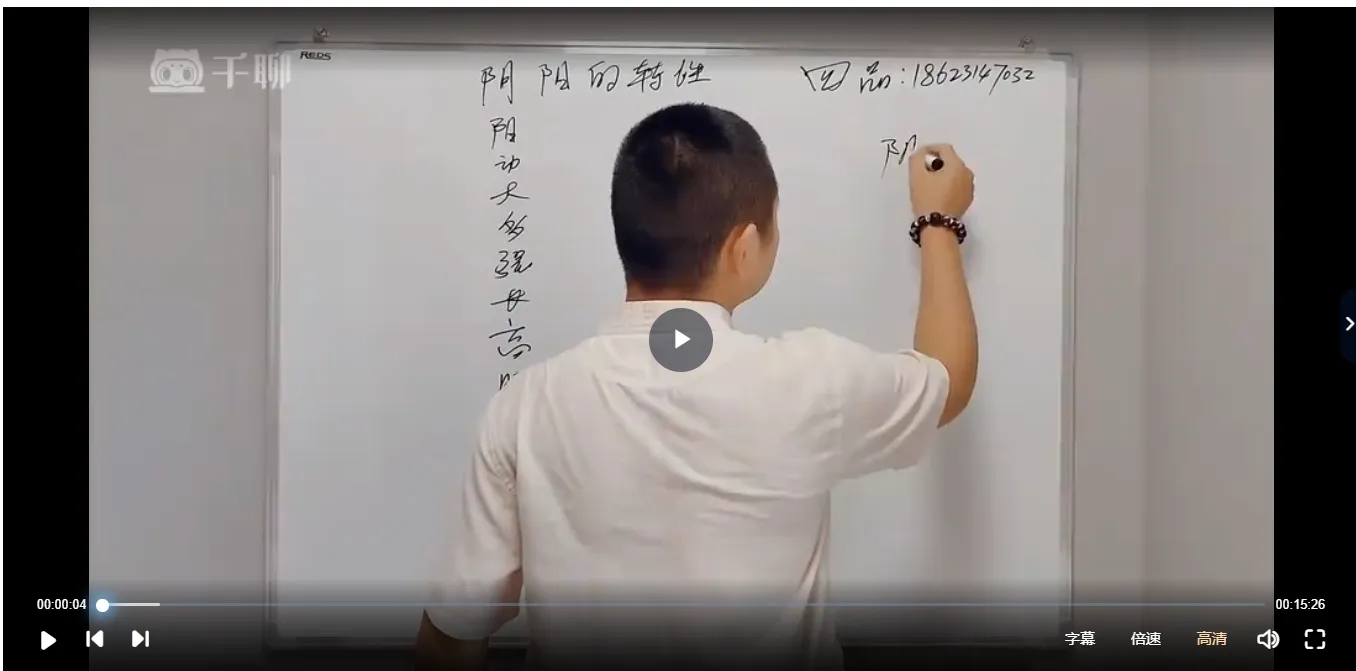 千聊
REDS
阴阳的转性
四品:18623147032
阳
动
大
多
强
长
高
00:00:04
00:15:26
字幕
倍速
高清